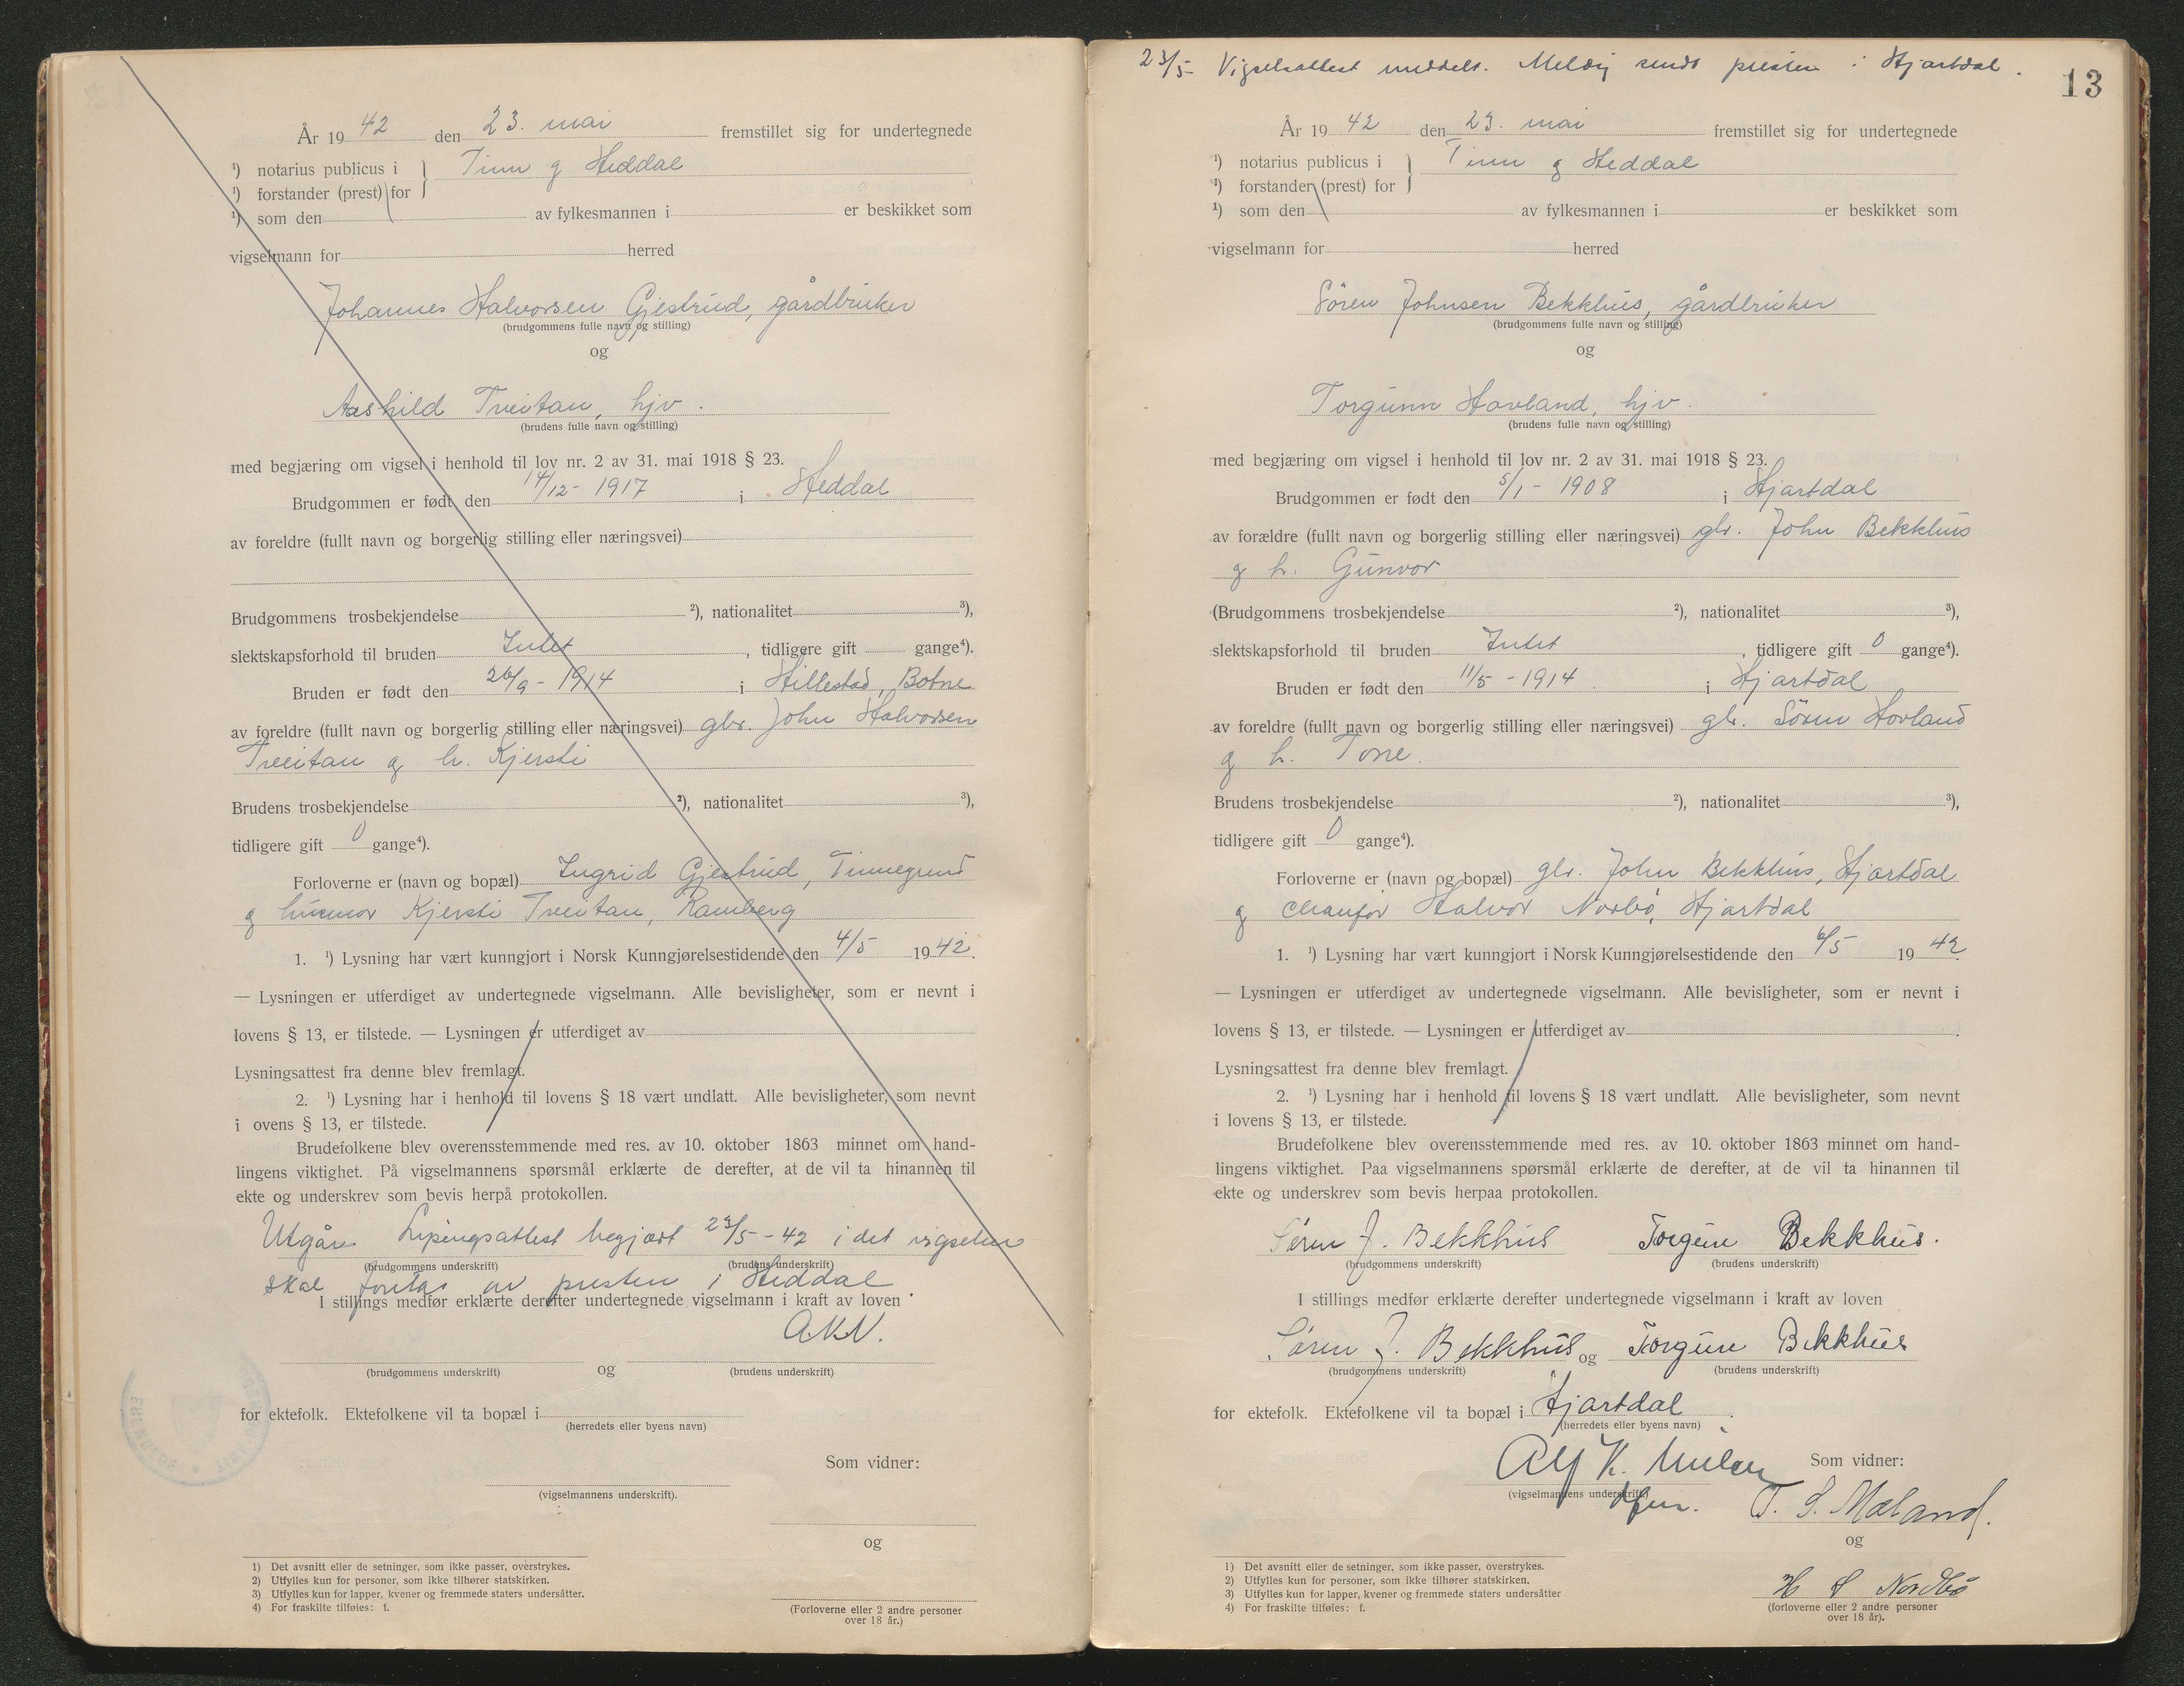 År 19 42 den 23. mai fremstillet sig for undertegnede
¹) notarius publicus i } Tinn og Heddal
¹) forstander (prest) for
¹) som den av fylkesmannen i er beskikket som
vigselmann for herred
Johannes Halvorsen Gjestrud, gårdbruker
(brudgommens fulle navn og stilling)
og
Aashild Treitan, hjv.
(brudens fulle navn og stilling)
med begjæring om vigsel i henhold til lov nr. 2 av 31. mai 1918 § 23.
Brudgommen er født den 14/12- 1917 i Heddal
av foreldre (fullt navn og borgerlig stilling eller næringsvei)
Brudgommens trosbekjendelse ²), nationalitet ³),
slektskapsforhold til bruden Intet, tidligere gift gange⁴).
Bruden er født den 26/9 - 1914 i Hillestad, Botne
av foreldre (fullt navn og borgerlig stilling eller næringsvei) gbr. John Halvorsen
Treitan og h. Kjersti
Brudens trosbekjendelse ²), nationalitet ³),
tidligere gift 0 gange⁴).
Forloverne er (navn og bopæl) Ingrid Gjestrud, Tinnegrend
og husmor Kjersti Treitan, Ramberg
1. ¹) Lysning har vært kunngjort i Norsk Kunngjørelsestidende den 4/5 19 42.
— Lysningen er utferdiget av undertegnede vigselmann. Alle bevisligheter, som er nevnt i
lovens § 13, er tilstede. — Lysningen er utferdiget av
Lysningsattest fra denne blev fremlagt.
2. ¹) Lysning har i henhold til lovens § 18 vært undlatt. Alle bevisligheter, som nevnt
i ovens § 13, er tilstede.
Brudefolkene blev overensstemmende med res. av 10. oktober 1863 minnet om hand-
lingens viktighet. På vigselmannens spørsmål erklærte de derefter, at de vil ta hinannen til
ekte og underskrev som bevis herpå protokollen.
Utgår Lysningsattest begjært 23/5 - 42 i det vigselen
(brudgommens underskrift) (brudens underskrift)
skal foretas av presten i Heddal
I stillings medfør erklærte derefter undertegnede vigselmann i kraft av loven
AKN.
og
(brudgommens underskrift) (brudens underskrift)
for ektefolk. Ektefolkene vil ta bopæl i
(herredets eller byens navn)
Som vidner:
(vigselmannens underskrift).
og
1) Det avsnitt eller de setninger, som ikke passer, overstrykes.
2) Utfylles kun for personer, som ikke tilhører statskirken.
3) Utfylles kun for lapper, kvener og fremmede staters undersåtter.
4) For fraskilte tilføies: f.
(Forloverne eller 2 andre personer
over 18 år.)
23/5 - Vigselsattest meddelt. Melding sendt presten i Hjartdal.
13
År 19 42 den 23. mai fremstillet sig for undertegnede
¹) notarius publicus i } Tinn og Heddal
¹) forstander (prest) for
¹) som den av fylkesmannen i er beskikket som
vigselmann for herred
Søren Johnsen Bekkhus, gårdbruker
(brudgommens fulle navn og stilling)
og
Torgunn Hovland, hjv.
(brudens fulle navn og stilling)
med begjæring om vigsel i henhold til lov nr. 2 av 31. mai 1918 § 23.
Brudgommen er født den 5/1 - 1908 i Hjartdal
av forældre (fullt navn og borgerlig stilling eller næringsvei) gbr. John Bekkhus
og h. Gunvor
(Brudgommens trosbekjendelse ²), nationalitet ³),
slektskapsforhold til bruden Intet, tidligere gift 0 gange⁴).
Bruden er født den 11/5 - 1914 i Hjartdal
av foreldre (fullt navn og borgerlig stilling eller næringsvei) gbr. Søren Hovland
og h. Tone.
Brudens trosbekjendelse ²), nationalitet ³),
tidligere gift 0 gange⁴).
Forloverne er (navn og bopæl) gbr. John Bekkhus, Hjartdal
og chaufør Halvor Norbø, Hjartdal
1. ¹) Lysning har vært kunngjort i Norsk Kunngjørelsestidende den 6/5 19 42.
— Lysningen er utferdiget av undertegnede vigselmann. Alle bevisligheter, som er nevnt i
lovens § 13, er tilstede. — Lysningen er utferdiget av .
Lysningsattest fra denne blev fremlagt.
2. ¹) Lysning har i henhold til lovens § 18 vært undlatt. Alle bevisligheter, som nevnt
i lovens § 13, er tilstede.
Brudefolkene blev overensstemmende med res. av 10. oktober 1863 minnet om hand-
lingens viktighet. Paa vigselmannens spørsmål erklærte de derefter, at de vil ta hinannen til
ekte og underskrev som bevis herpaa protokollen.
Søren J. Bekkhus Torgun Bekkhus.
(brudgommens underskrift) (brudens underskrift)
I stillings medfør erklærte derefter undertegnede vigselmann i kraft av loven
Søren J. Bekkhus og Torgun Bekkhus
(brudgommens underskrift) (brudens underskrift)
for ektefolk. Ektefolkene vil ta bopæl i Hjartdal.
(herredets eller byens navn)
Alf K. Som vidner:
(vigselmannens underskrift)
T. S. Mæland.
og
H S Nordbø
1) Det avsnitt eller de setninger, som ikke passer, overstrykes.
2) Utfylles kun for personer, som ikke tilhører statskirken.
3) Utfylles kun for lapper, kvener og fremmede staters undersåtter
4) For fraskilte tilføies: f.
(forloverne eller 2 andre personer
over 18 år).